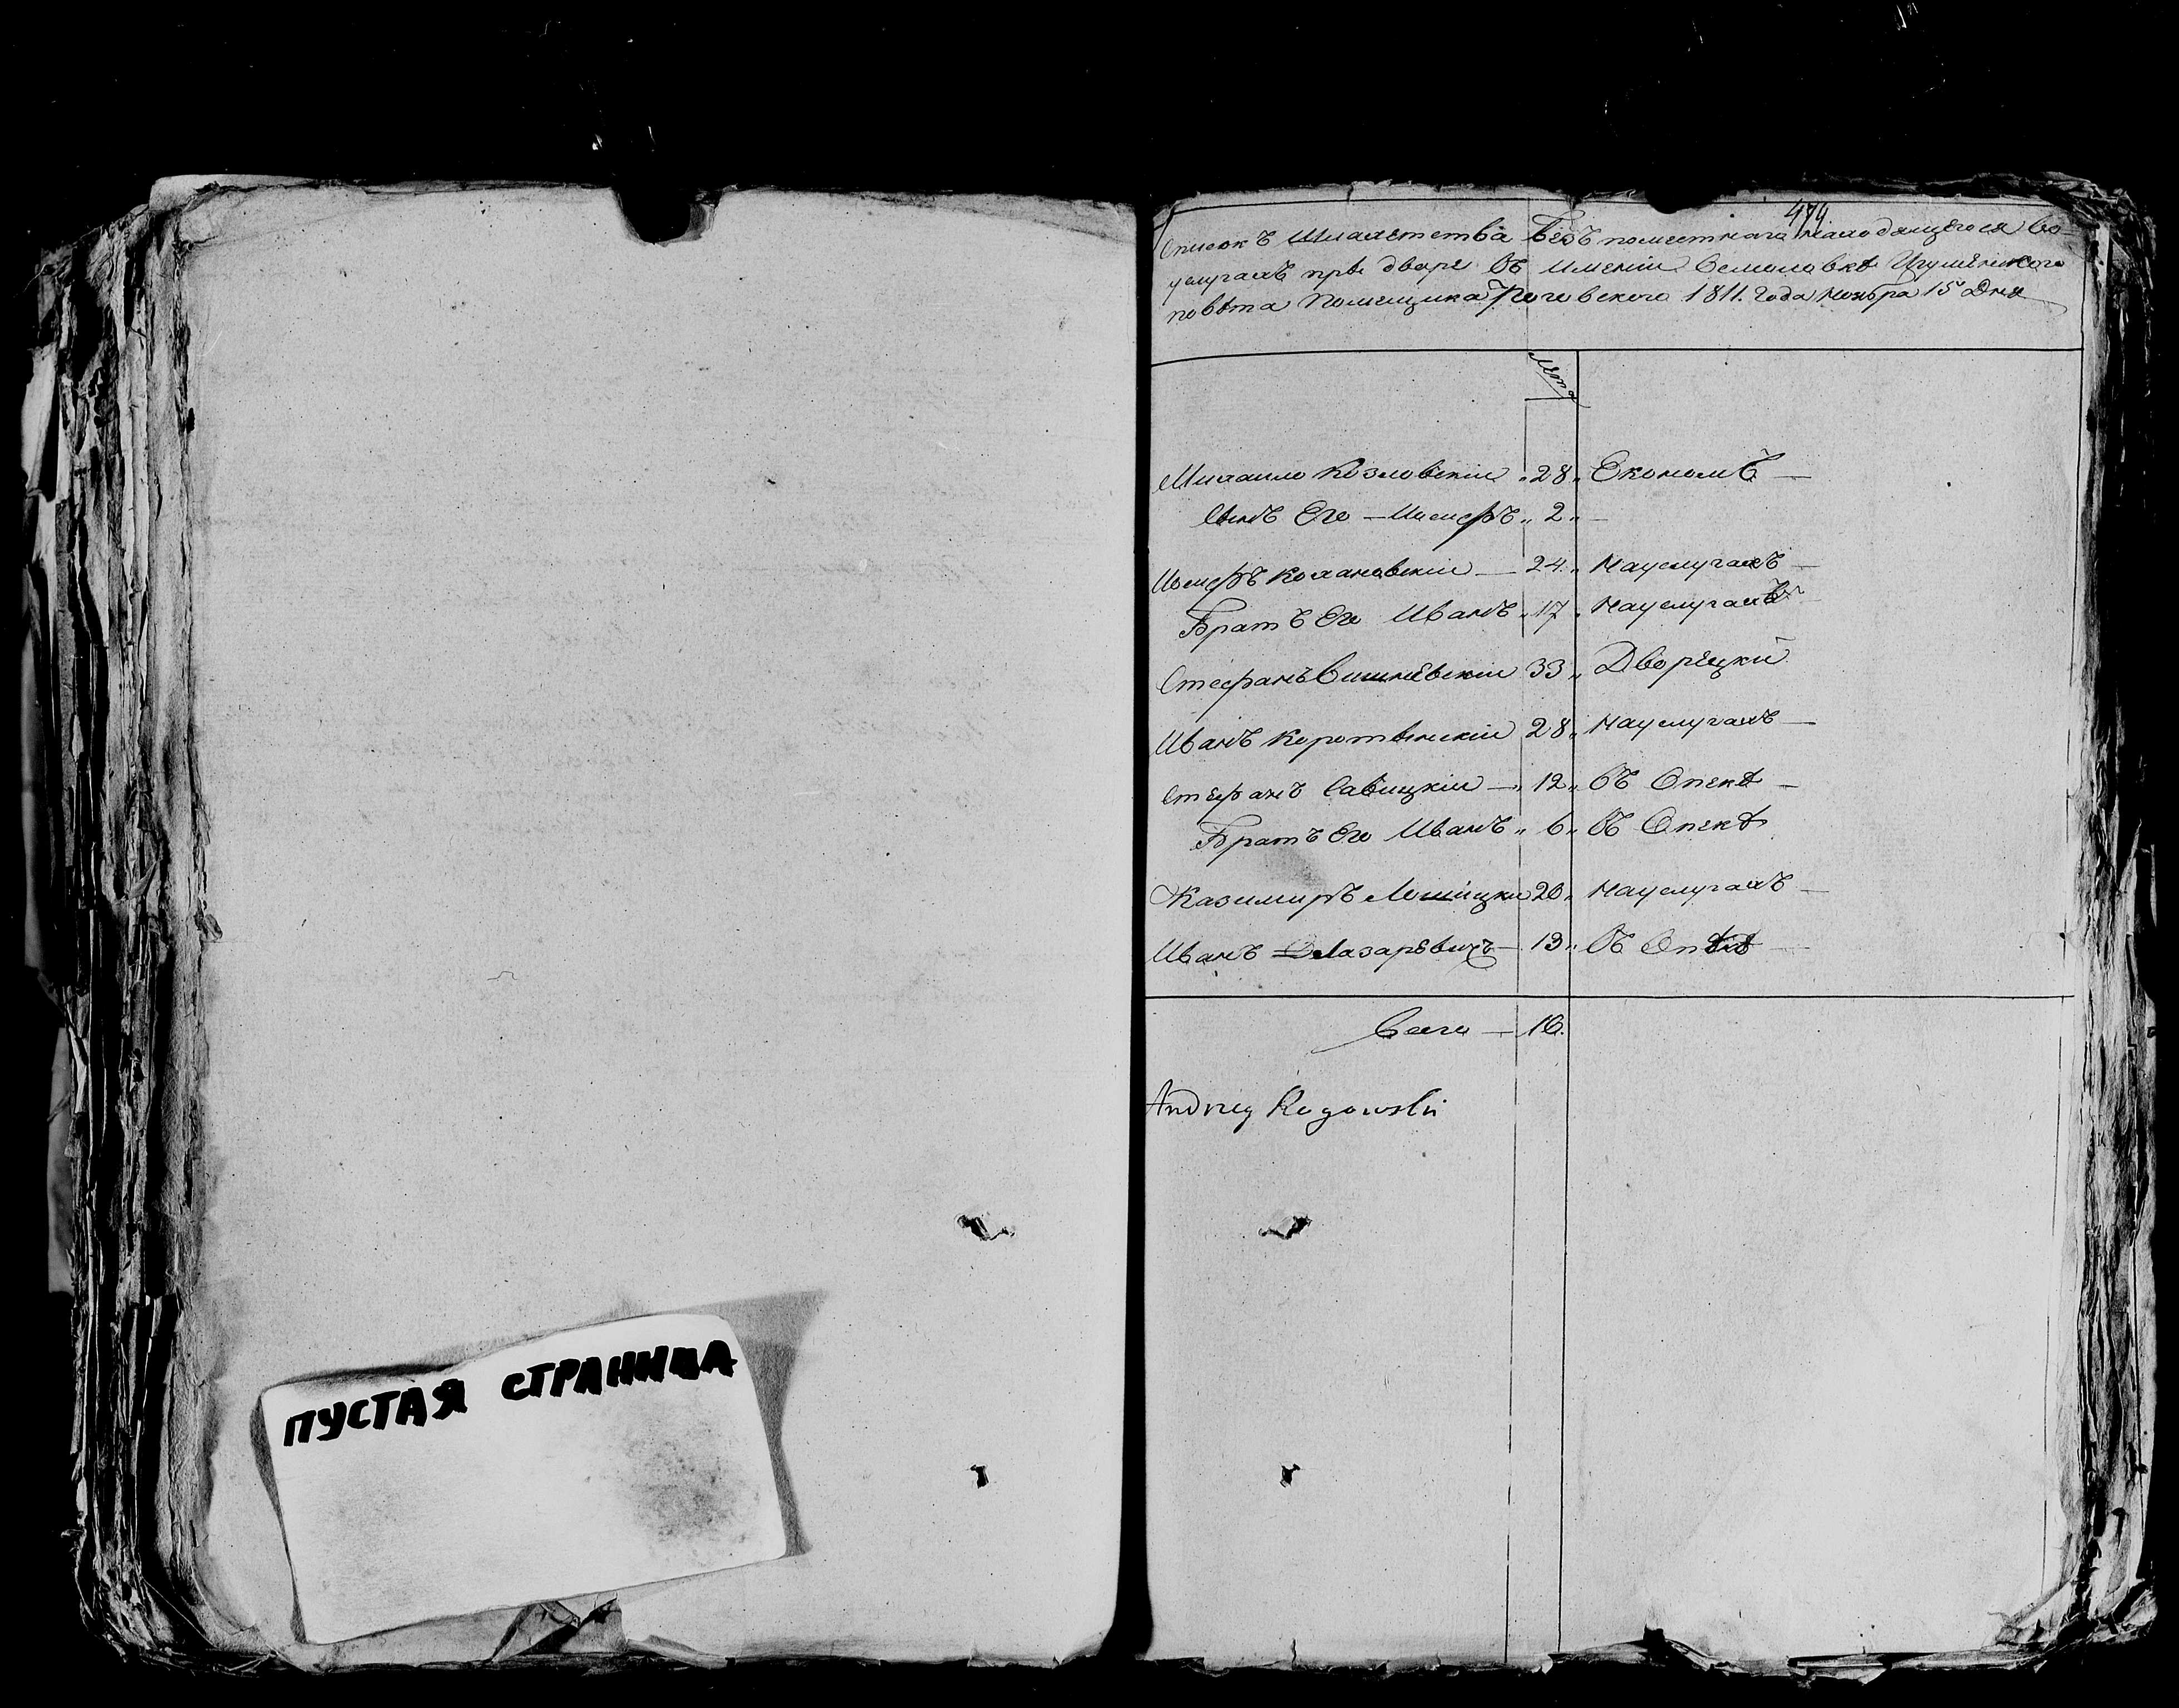 ПУСТАЯ СТРАНИЦА
474
Списокъ Шляхетства безъ поместнаго находящегося во
услугахъ при дворе въ имении Семиловке Игуменского
повета Помещика Роговского 1811. Года ноября 15 Дня
Лета
Михаило Козловскии 28 Економъ
Сынъ Его Иосифъ 2
Иосифъ Кохановскии 24 На услугахъ
Братъ Его Иванъ 17 На услугахъ
Стефанъ Вишневскии 33 Дворецкй
Иванъ Коротынскии 28 На услугахъ
Стефанъ Савицкии 12 Въ Опекѣ
Братъ Его Иванъ 6 Въ Опекѣ
Казимиръ 20 На услугахъ
Иванъ Лазаревичъ 13 Въ
Всего 10.
Andrzey Rogowski